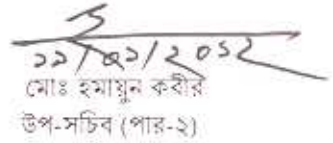 ২২/০২/২০১২
মোঃ হুমায়ুন কবীর
উপ-সচিব (পার-২)